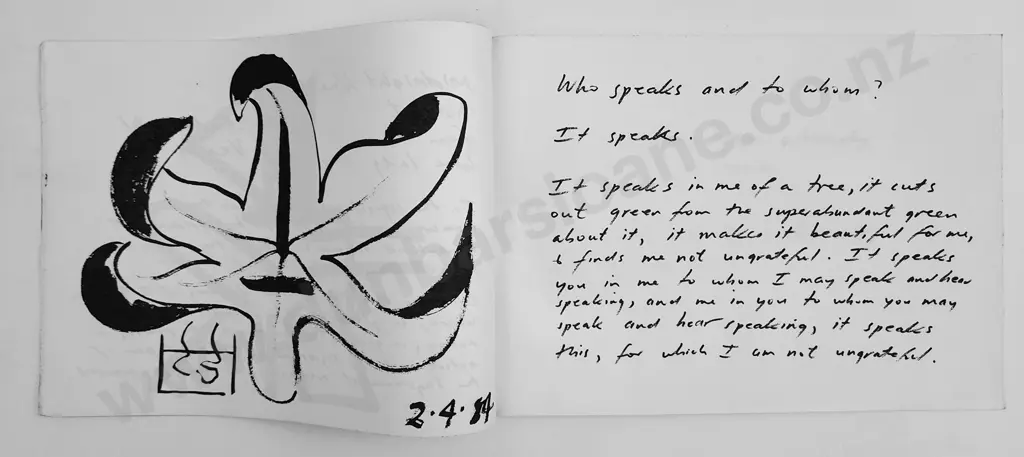 2.4.84
Who speaks and to whom?
It speaks.
It speaks in me of a tree, it cuts
out green from the superabundant green
about it, it makes it beautiful for me,
& finds me not ungrateful. It speaks
you in me to whom I may speak and hear
speaking, and me in you to whom you may
speak and hear speaking, it speaks
this, for which I am not ungrateful.